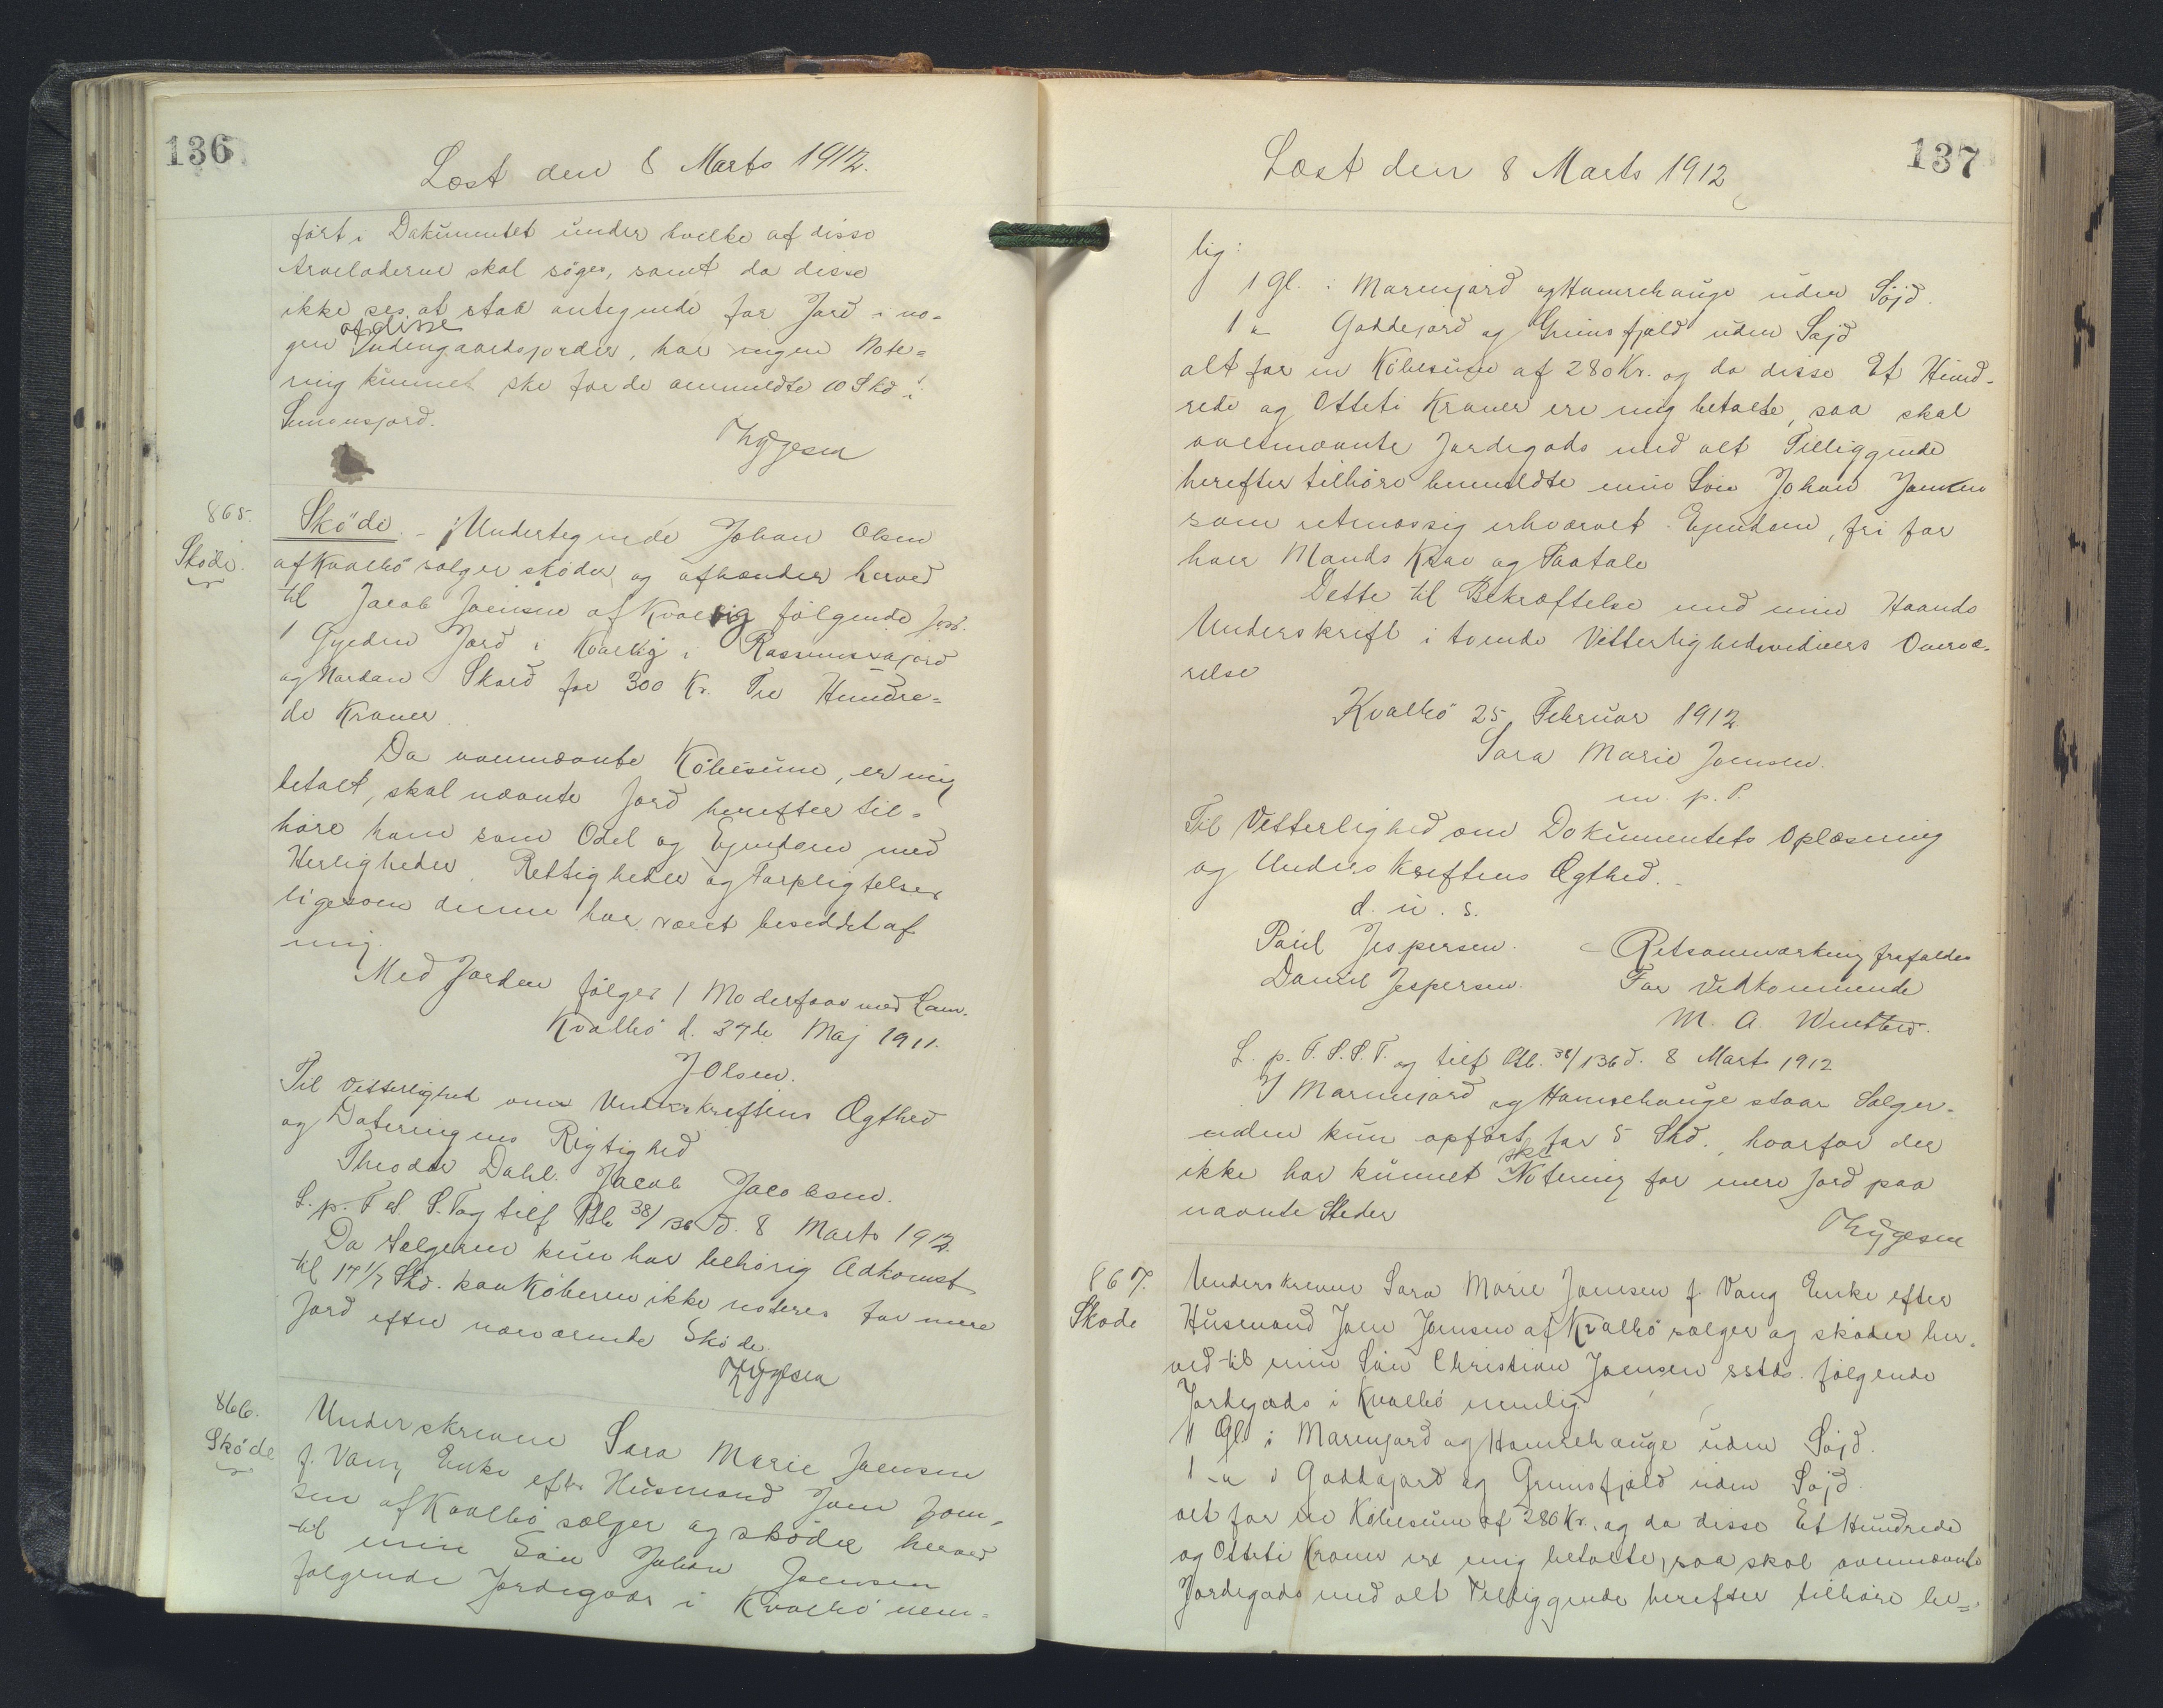 136
Læst den 8 Marts 1912.
ført i Dokumentet under hvilke af disse
Arveloderne skal søges, samt da disse
ikke ses at staa antegnede for Jord i no-
gen af disse Indengaardsjorder, har ingen Note=
ring kunnet ske for de anmeldte 10 Skd. i
Simonsjord.
Thygesen
865.
Skøde.
Skøde. - Undertegnede Johan Olsen
af Kvalbø sælger skøder og afhænder herved
til Jacob Joensen af Kvalvig følgende Jord.
1 Gylden Jord i Kvalvig i Rasmusajord
og Nordan Skard for 300 Kr. Tre Hundre=
de Kroner.
Da ovennævnte Købesum, er mig
betalt, skal nævnte Jord herefter til=
høre ham som Odel og Ejendom med
Herligheder, Rettigheder og Forpligtelser
ligesom denne har været besiddet af
mig.
Med Jorden følger 1 Moderfaar med Lam.
Kvalbø d. 24de Maj 1911.
J Olsen.
Til Vitterlighed om Underskriftens Ægthed
og Dateringens Rigtighed
Theodor Dahl. Jacob Jacobsen.
L. p. F. S. S. T og tilf Ptb 38/136 d. 8 Marts 1912.
Da Sælgeren kun har behørig Adkomst
til 17 1/7 Skd. kan Køberen ikke noteres for mere
Jord efter nærværende Skøde.
Thygesen
866.
Skøde
Underskrevne Sara Marie Joensen
f. Vang Enke efter Husmand Joen Joen-
sen af Kvalbø sælger og skøder herved
til min Søn Johan Joensen
følgende Jordegods i Kvalbø nem-
137
Læst den 8 Marts 1912
lig:
1 Gl. i Marenjord og Hamrehauge uden Søjd.
1 " Goddejord og Grunsfjæld uden Søjd
alt for en Købesum af 280 Kr. og da disse Et Hund-
rede og Otteti Kroner ere mig betalte, saa skal
ovennævnte Jordegods med alt Tilliggende
herefter tilhøre bemeldte min Søn Johan Joensen
som retmæssig erhvervet Ejendom, fri for
hver Mands Krav og Paatale
Dette til Bekræftelse med min Haands
Underskrift i tvende Vitterlighedsvidners Overvæ-
relse
Kvalbø 25 Februar 1912
Sara Marie Joensen.
m. p. P.
Til Vitterlighed om Dokumentets Oplæsning
og Underskriftens Ægthed. -
d. u. s.
Paul Jespersen. - Retsanmærkning frafaldes
Daniel Jespersen. For Vedkommende
M. A. Winther.
L. p. F. S. S. T. og tilf Ptb. 38/136 d. 8 Marts 1912
I Marenjord og Hamrehauge staar Sælger-
inden kun opført for 5 Skd., hvorfor der
ikke har kunnet ske Notering for mere Jord paa
nævnte Steder
Thygesen
867.
Skøde
Underskrevne Sara Marie Joensen f. Vang Enke efter
Husmand Joen Joensen af Kvalbø sælger og skøder her-
ved til min Søn Christian Joensen sstds. følgende
Jordegods i Kvalbø nemlig
1 Gl i Marenjord og Hamrehauge uden Søjd.
1 " i Goddajord og Grunsfjæld uden Søjd.
alt for en Købesum af 280 Kr. og da disse Et Hundrede
og Otteti Kroner ere mig betalte, saa skal ovennævnte
Jordegods med alt Tilliggende herefter tilhøre be=